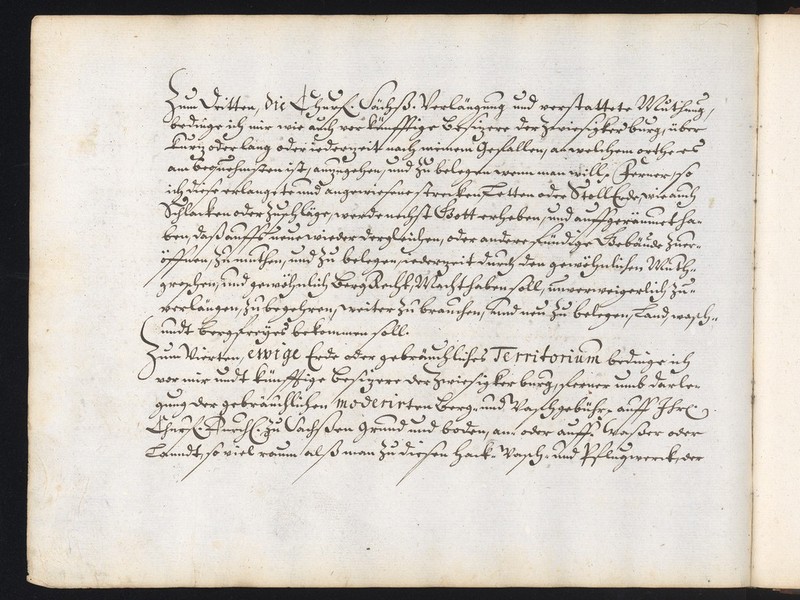 Zum Dritten, die Churf. Sächß. Verlängung und verstattete Muthung,
bedinge ich mir wie auch vor künfftige Besizere der Zwiesigker burg, über
kurtz oder lang oder iederzeit nach meinem Gefallen, an welchem orthe es
am bequehmsten ist, anzugehen, und zu belegen wenn man will. Ferner, so
ich diese erlangste und angewiesene strecken Letten oder Stoll Erde, wie auch
Schlacken oder Zuschläge, werde nechst Gott erheben, und auffgeräumet ha-
ben, daß auffs neue wieder dergleichen, oder andere fündige Gebäude zuer-
öffnen, zu muthen, und zu belegen, iederzeit durch den gewöhnlichen Muth-
groschen, und gewöhnlich Berg Recht, Macht haben soll, unverweigerlich zu-
verlängen, zu begehren, weiter zu brauchen, und neu zu belegen, Land, wasch-
undt bergfreyes bekommen soll.
Zum Vierten, ewige Erde oder gebräuchliches Territorium bedinge ich
vor mir undt künfftige besizere der Zwiesigker burg, ferner umb darle-
gung der gebräuchlichen moderirten Berg- und Waschgebühr, auff Ihre
Churf. Durchl. zu Sachßen grund und boden, an- oder auff Waßer oder
Lanndt, so viel raum, alß man zu diesen Hack- Wasch- und Pflugwerck, der